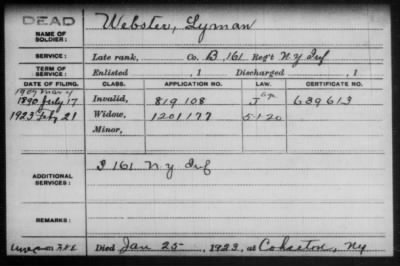 DEAD
NAME OF SOLDIER: Webster, Lyman
SERVICE: Late rank, Co. B, 161 Reg't N.Y. Inf
TERM OF SERVICE: Enlisted , 1 Discharged , 1
DATE OF FILING. CLASS. APPLICATION NO. LAW. CERTIFICATE NO.
1890 July 17 Invalid, 819.108 J 639613
1923 Feb 21 Widow, 1201177 5-1-20
Minor,
ADDITIONAL SERVICES: I 161 N.Y. Inf
REMARKS:
Died Jan 25, 1923, at Cohocton, NY